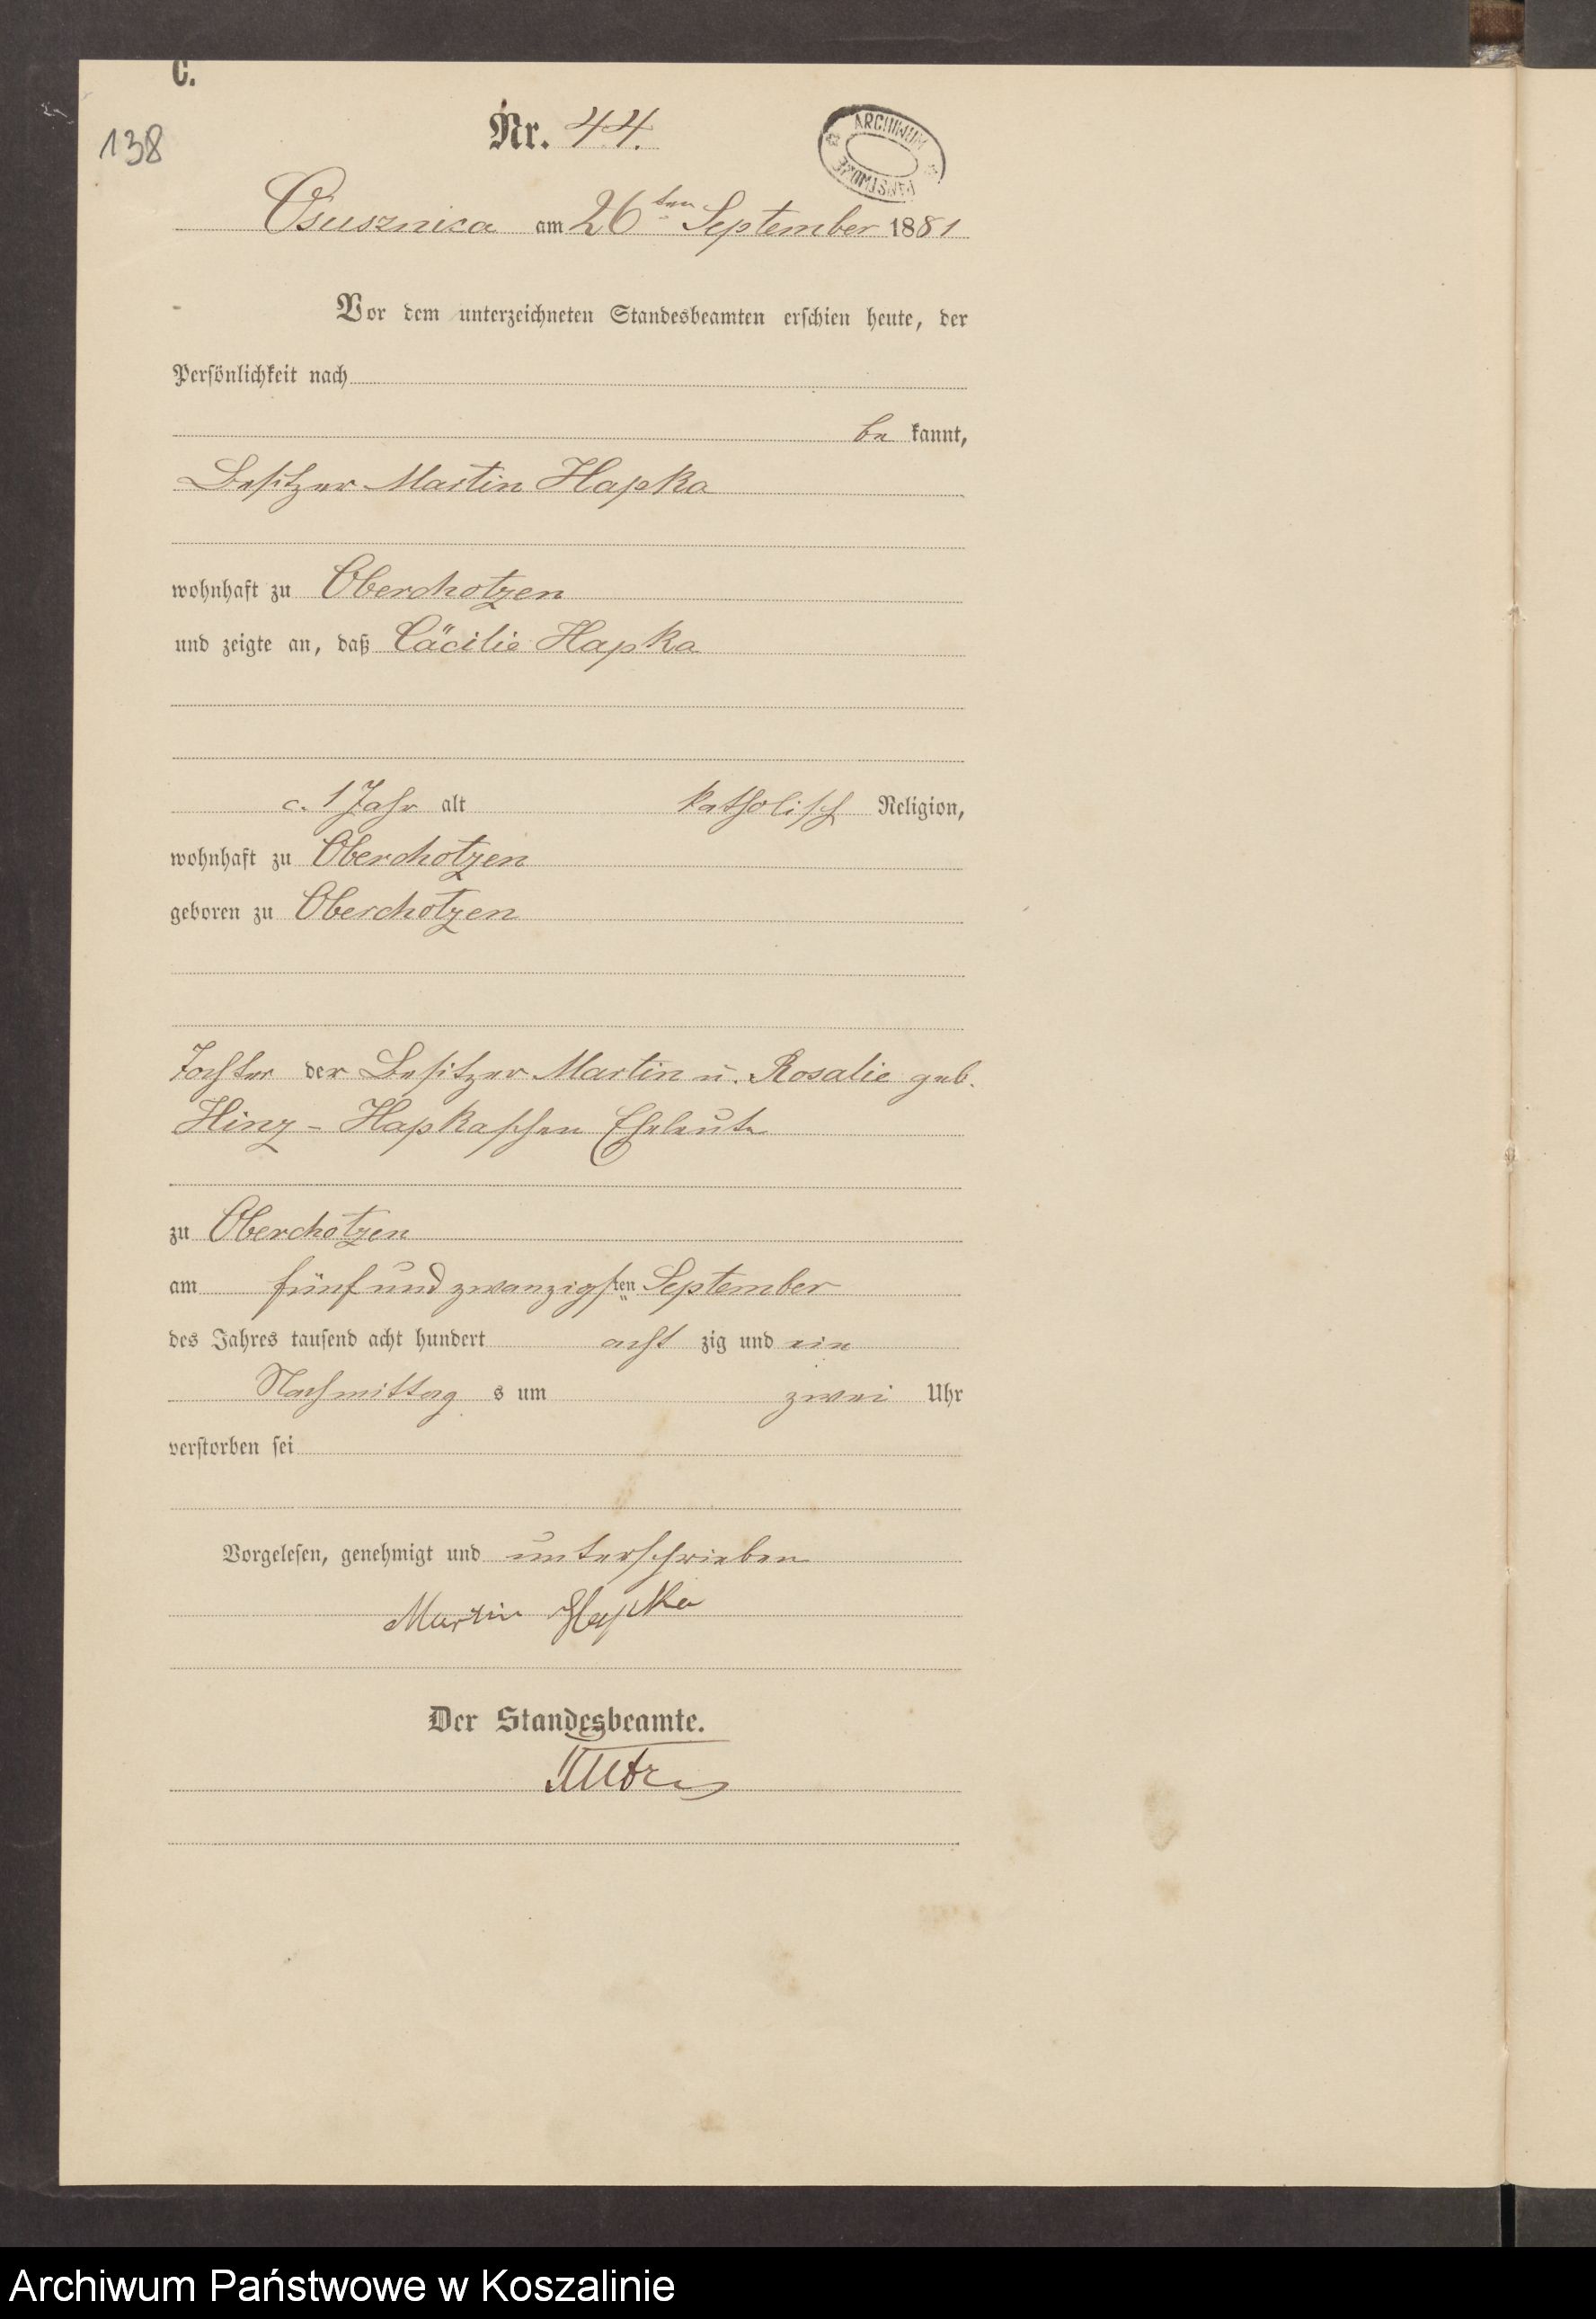 C.
138
Nr. 44.
ARCHIWUM PAŃSTWOWE
Osusznica am 26ten September 1881
Vor dem unterzeichneten Standesbeamten erschien heute, der
Persönlichkeit nach
be kannt,
Besitzer Martin Hapka
wohnhaft zu Oberchotzen
und zeigte an, daß Cäcilie Hapka
c. 1 Jahr alt katholisch Religion,
wohnhaft zu Oberchotzen
geboren zu Oberchotzen
Tochter der Besitzer Martin u. Rosalie geb.
Hinz - Hapkaschen Eheleute
zu Oberchotzen
am fünfundzwanzigsten September
des Jahres tausend acht hundert acht zig und ein
Nachmittag s um zwei Uhr
verstorben sei
Vorgelesen, genehmigt und unterschrieben
Martin Hapka
Der Standesbeamte.
Archiwum Państwowe w Koszalinie